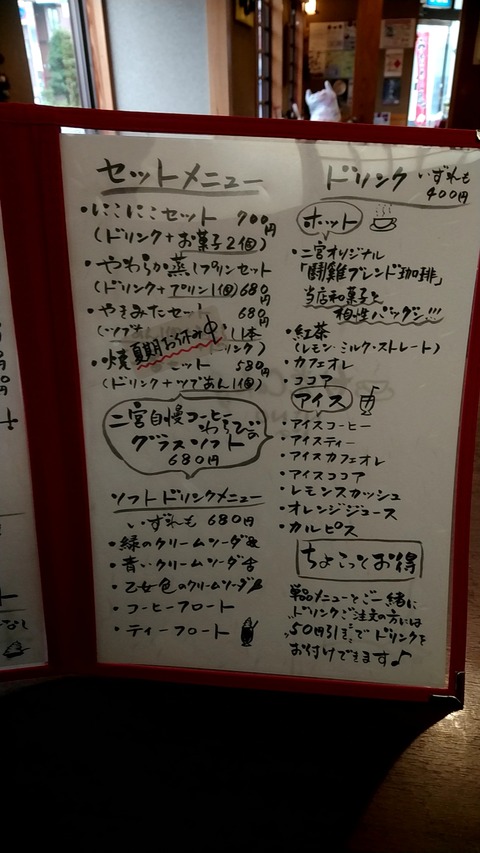 セットメニュー
・にこにこセット 700円
(ドリンク+お菓子2個)
・やわらか蒸しプリンセット
(ドリンク+プリン1個) 680円
・やきみたセット 680円
夏期お休み中
1本
ドリンク)
・焼 ット 580円
(ドリンク+つぶあん1個)
二宮自慢コーヒー
わらびの
グラスソフト
680円
ソフトドリンクメニュー
いずれも 680円
・緑のクリームソーダ
・青いクリームソーダ
・乙女色のクリームソーダ
・コーヒーフロート
・ティーフロート
ドリンク いずれも
400円
ホット
・二宮オリジナル
「闘雞ブレンド珈琲」
当店和菓子と
相性バツグン!!!
・紅茶
(レモン・ミルク・ストレート)
・カフェオレ
・ココア
アイス
・アイスコーヒー
・アイスティー
・アイスカフェオレ
・アイスココア
・レモンスカッシュ
・オレンジジュース
・カルピス
ちょこっとお得
単品メニューとご一緒に
ドリンクご注文の方いは
50円引きでドリンクを
お付けできます♪
なし